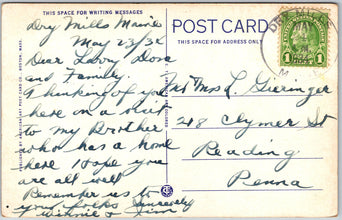 THIS SPACE FOR WRITING MESSAGES
POST CARD
THIS SPACE FOR ADDRESS ONLY
Dry Mills Maine
May 23/32
Dear Leroy Dora
and Family.
Thinking of you
here on a visit
to my Brother
who has a home
here. Hope you
are all well
Remember us to
your folks Sincerely
Winnie & Jim
Mr & Mrs L. Gieringer
218 Clymer St
Reading
Penna
DRY MILLS
1 1